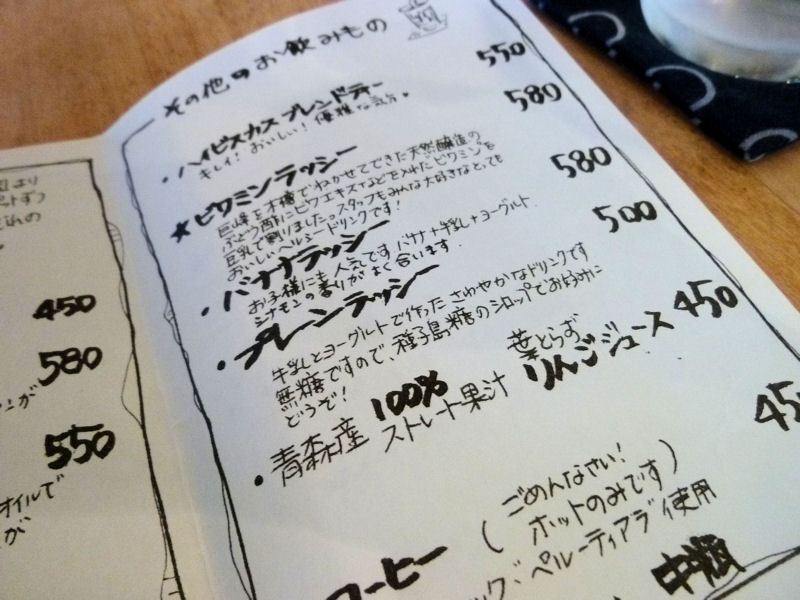 より
450
580
が
550
オイルで
が
その他のお飲みもの
ハイビスカスブレンドティー 550
キレイ！おいしい！優雅な気分♥
★ビワミンラッシー 580
巨峰を木樽でねかせてできた天然醸造の
ぶどう酢にビワエキスなどを入れた"ビワミン"を
豆乳で割りました。スタッフもみんな大好きなとっても
おいしいヘルシードリンクです！
・バナナラッシー 580
お子様にも人気です バナナ+牛乳+ヨーグルト
シナモンの香りがよく合います．
・プレーンラッシー 500
牛乳とヨーグルトで作ったさわやかなドリンクです
無糖ですので、種子島糖のシロップでお好みに
どうぞ！
・青森産 100% ストレート果汁 葉とらずりんごジュース 450
コーヒー (ごめんなさい！
ホットのみです)
ペルーティアラ使用
中瓶